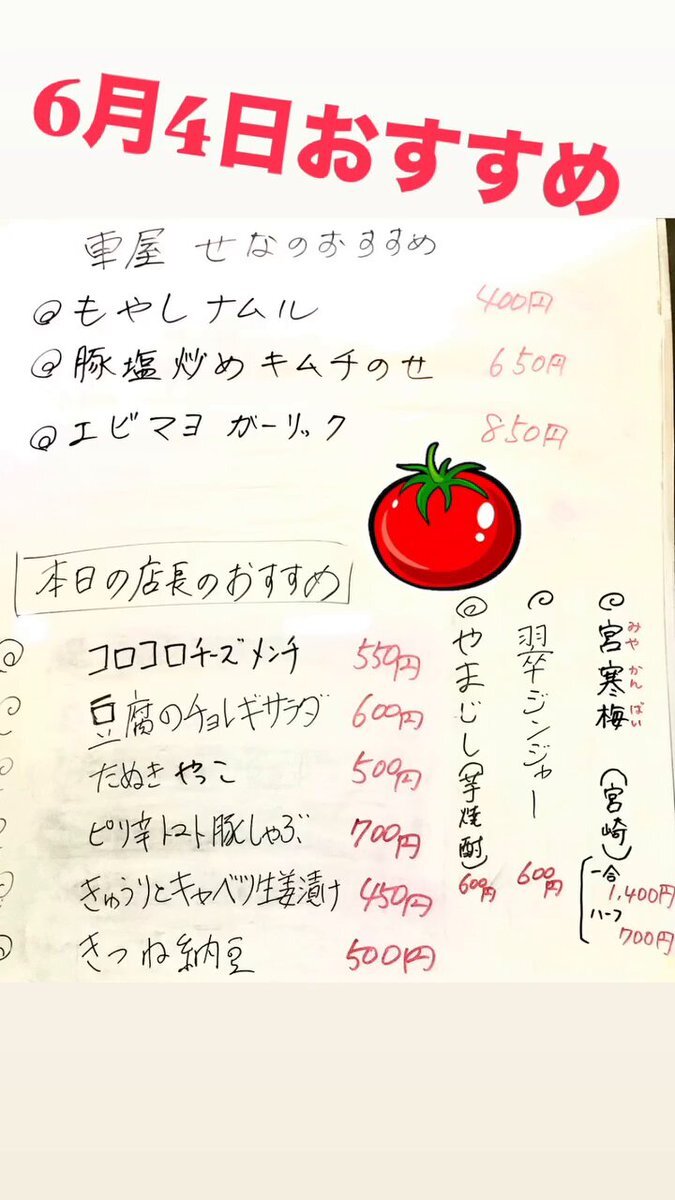 6月4日おすすめ
車屋 せなのおすすめ
もやしナムル 400円
豚塩炒めキムチのせ 650円
エビマヨ ガーリック 850円
本日の店長のおすすめ
コロコロチーズメンチ 550円
豆腐のチョレギサラダ 600円
たぬきやっこ 500円
ピリ辛トマト豚しゃぶ 700円
きゅうりとキャベツ生姜漬け 450円
きつね納豆 500円
宮寒梅 (宮崎)
みやかんばい
一合 1,400円
ハーフ 700円
翠ジンジャー 600円
やまじし(芋焼酎) 600円